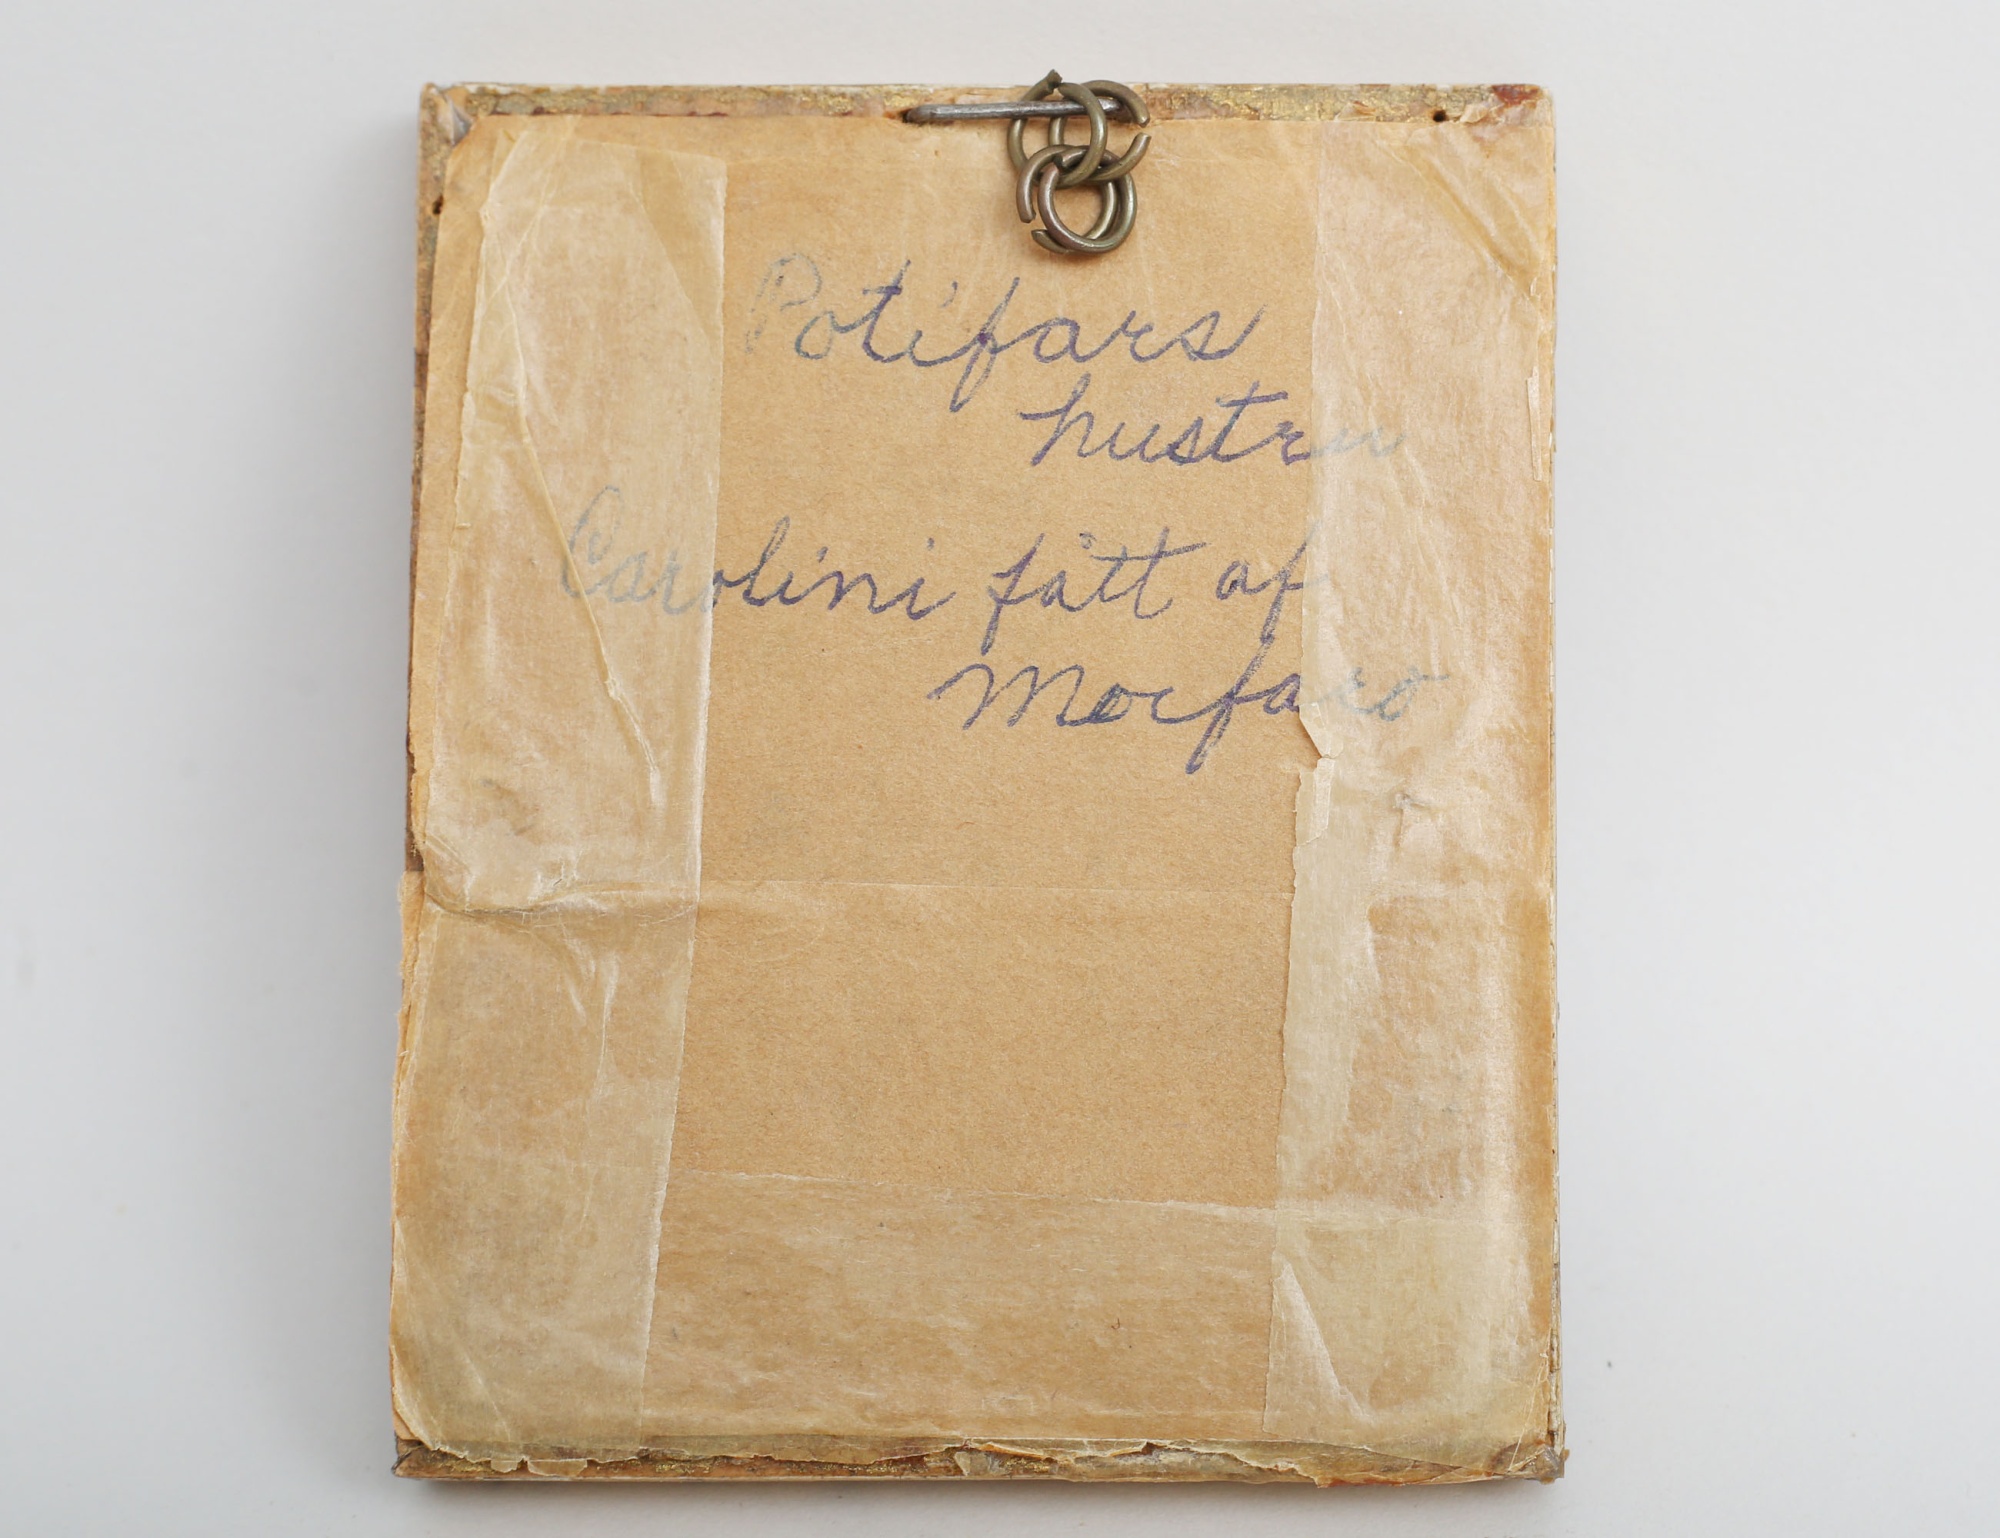 Potifars
hustru
Carolini fått af
Morfaro